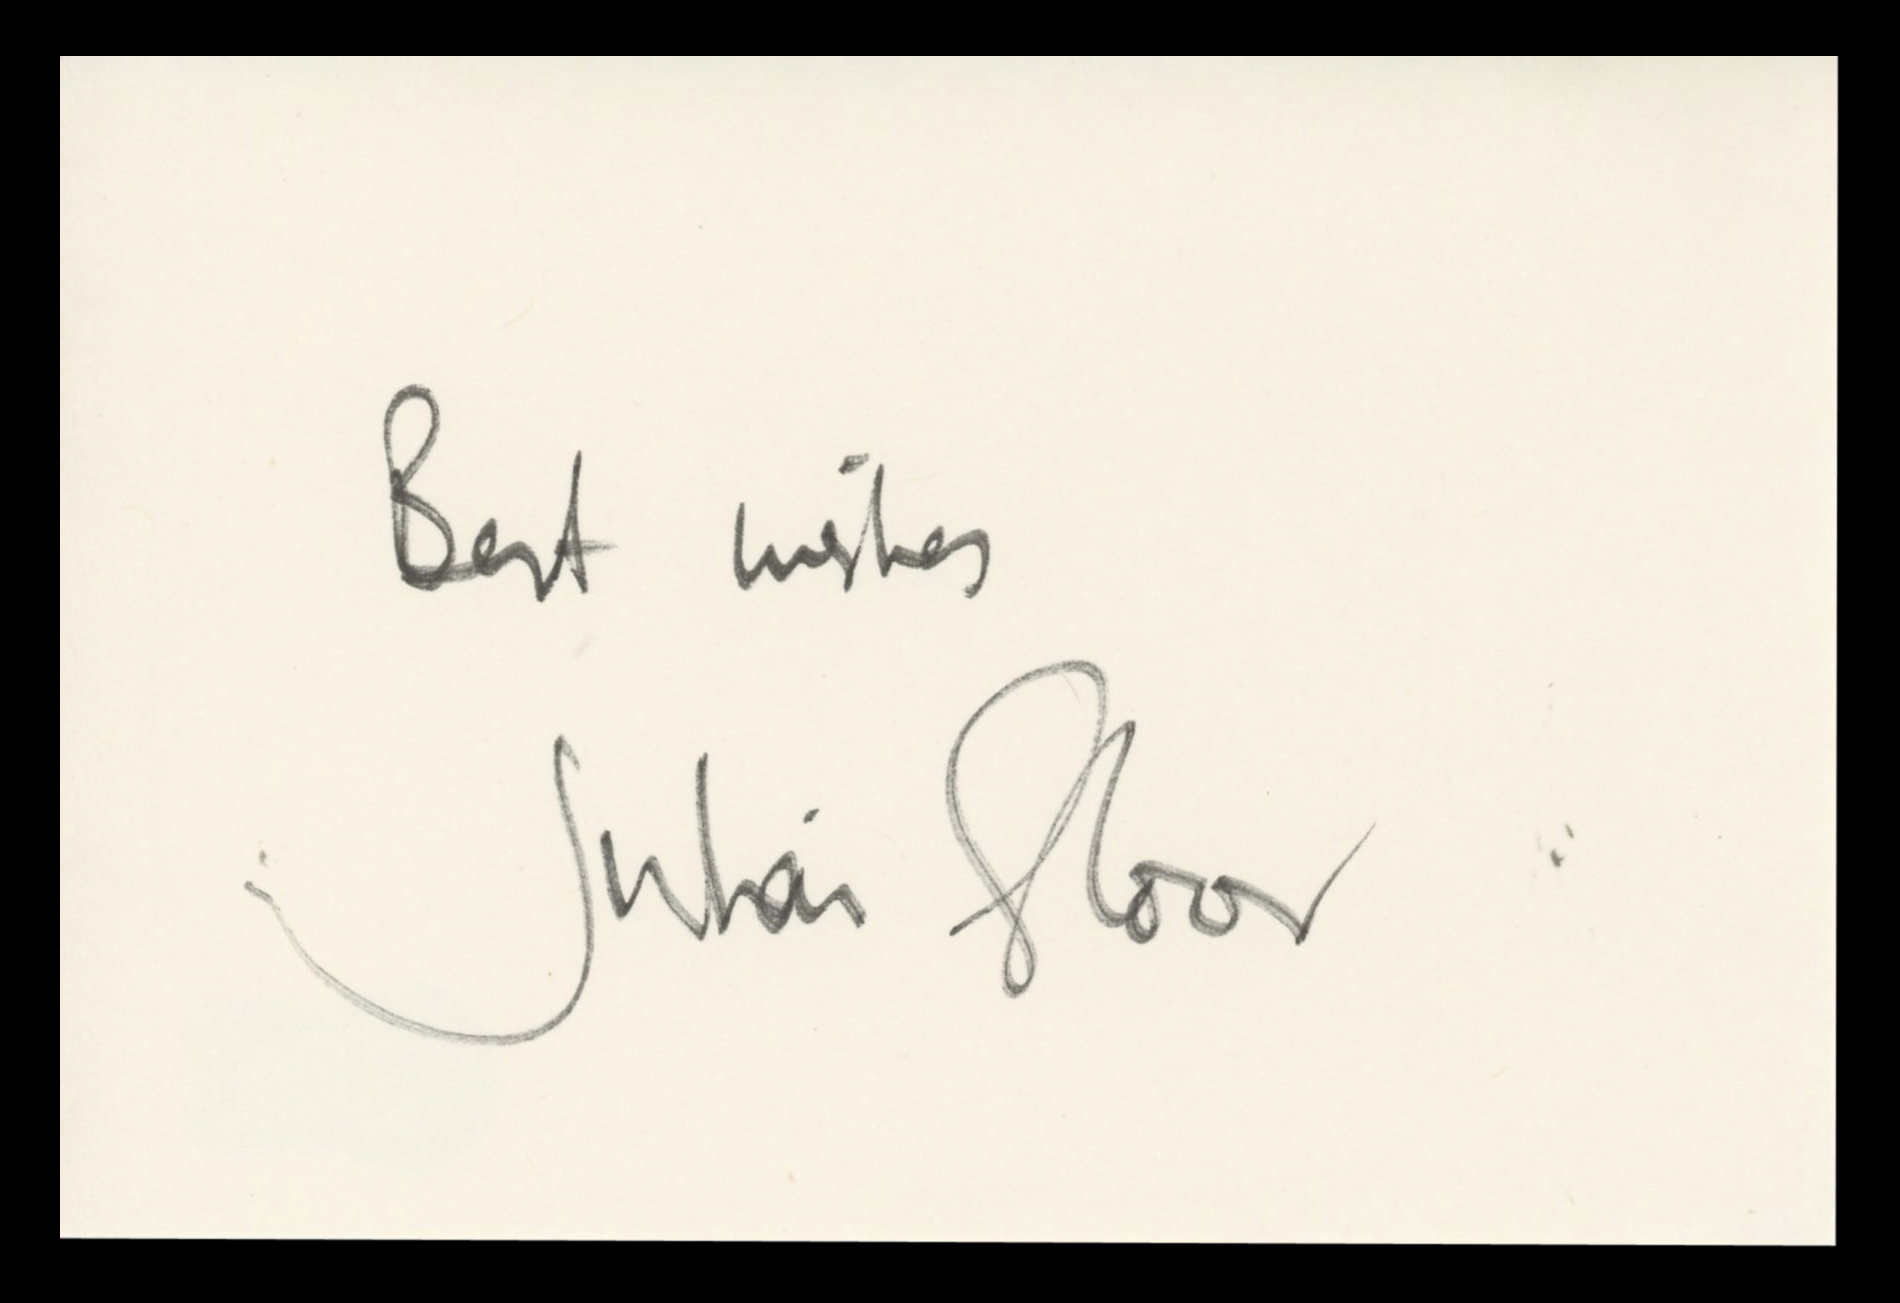 Best wishes
Julian Gloor